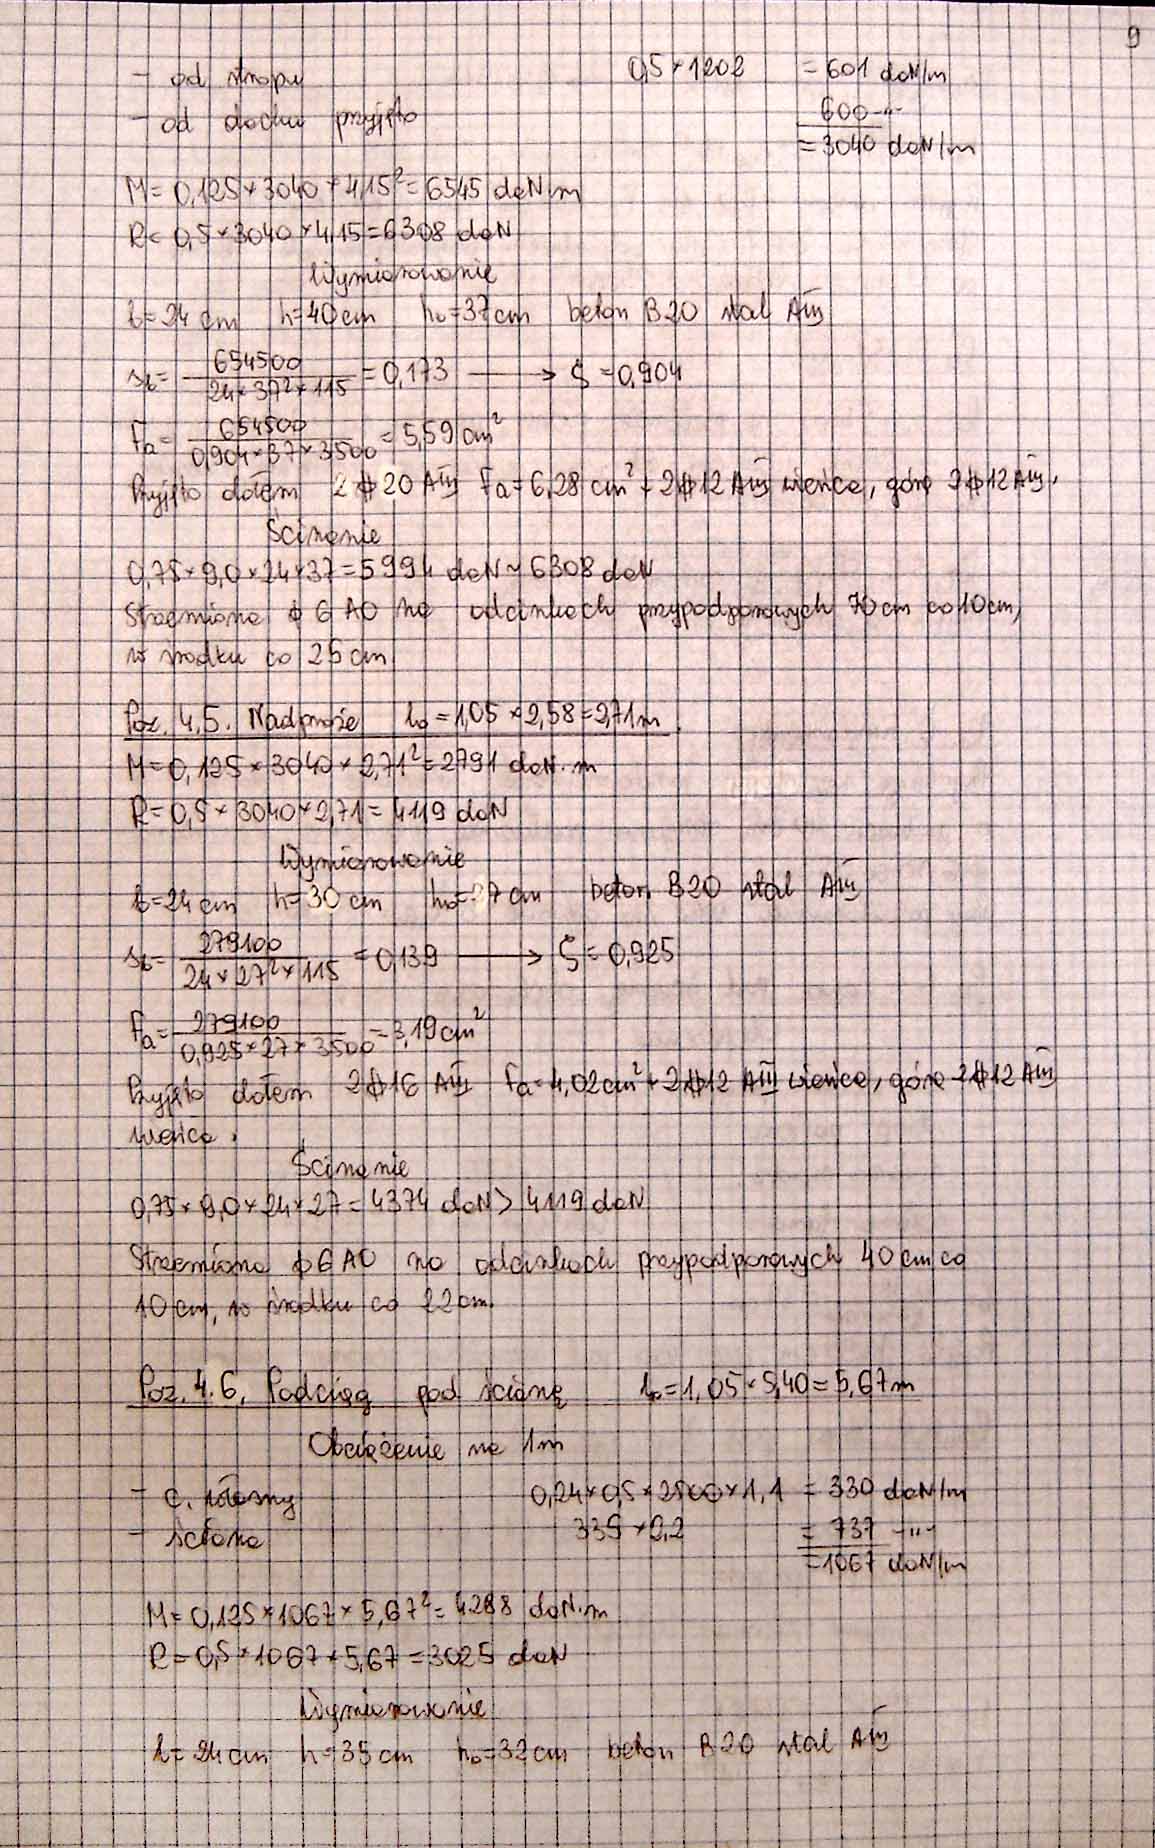 9
- od stropu 0,5 × 1202 = 601 daN/m
- od dachu przyjęto 600 -"-
= 3040 daN/m
M = 0,125 × 3040 × 4,15² = 6545 daN·m
R = 0,5 × 3040 × 4,15 = 6308 daN
Wymiarowanie
b = 24 cm h = 40 cm h₀ = 37 cm beton B20 stal AIII
s_b = 654500 / 24 × 37² × 115 = 0,173 ⟶ ζ = 0,904
Fa = 654500 / 0,904 × 37 × 3500 = 5,59 cm²
Przyjęto dołem 2 # 20 AIII Fa = 6,28 cm² + 2 # 12 AIII wieńca, górą 2 # 12 AIII.
Ścinanie
0,75 × 9,0 × 24 × 37 = 5994 daN ~ 6308 daN
Strzemiona ϕ 6 A0 na odcinkach przypodporowych 70 cm co 10 cm,
w środku co 25 cm.
Poz. 4.5. Nadproże l₀ = 1,05 × 2,58 = 2,71 m.
M = 0,125 × 3040 × 2,71² = 2791 daN·m
R = 0,5 × 3040 × 2,71 = 4119 daN
Wymiarowanie
b = 24 cm h = 30 cm h₀ = 27 cm beton B20 stal AIII
s_b = 279100 / 24 × 27² × 115 = 0,139 ⟶ ζ = 0,925
Fa = 279100 / 0,925 × 27 × 3500 = 3,19 cm²
Przyjęto dołem 2 # 16 AIII Fa = 4,02 cm² + 2 # 12 AIII wieńca, górą 2 # 12 AIII
wieńca.
Ścinanie
0,75 × 9,0 × 24 × 27 = 4374 daN > 4119 daN
Strzemiona ϕ 6 A0 na odcinkach przypodporowych 40 cm co
10 cm, w środku co 22 cm.
Poz. 4.6. Podciąg pod ścianę l₀ = 1,05 × 5,40 = 5,67 m
Obciążenie na 1m
- c. własny 0,24 × 0,5 × 2500 × 1,1 = 330 daN/m
- ściana 335 × 2,2 = 737 -"-
= 1067 daN/m
M = 0,125 × 1067 × 5,67² = 4288 daN·m
R = 0,5 × 1067 × 5,67 = 3025 daN
Wymiarowanie
b = 24 cm h = 35 cm h₀ = 32 cm beton B20 stal AIII